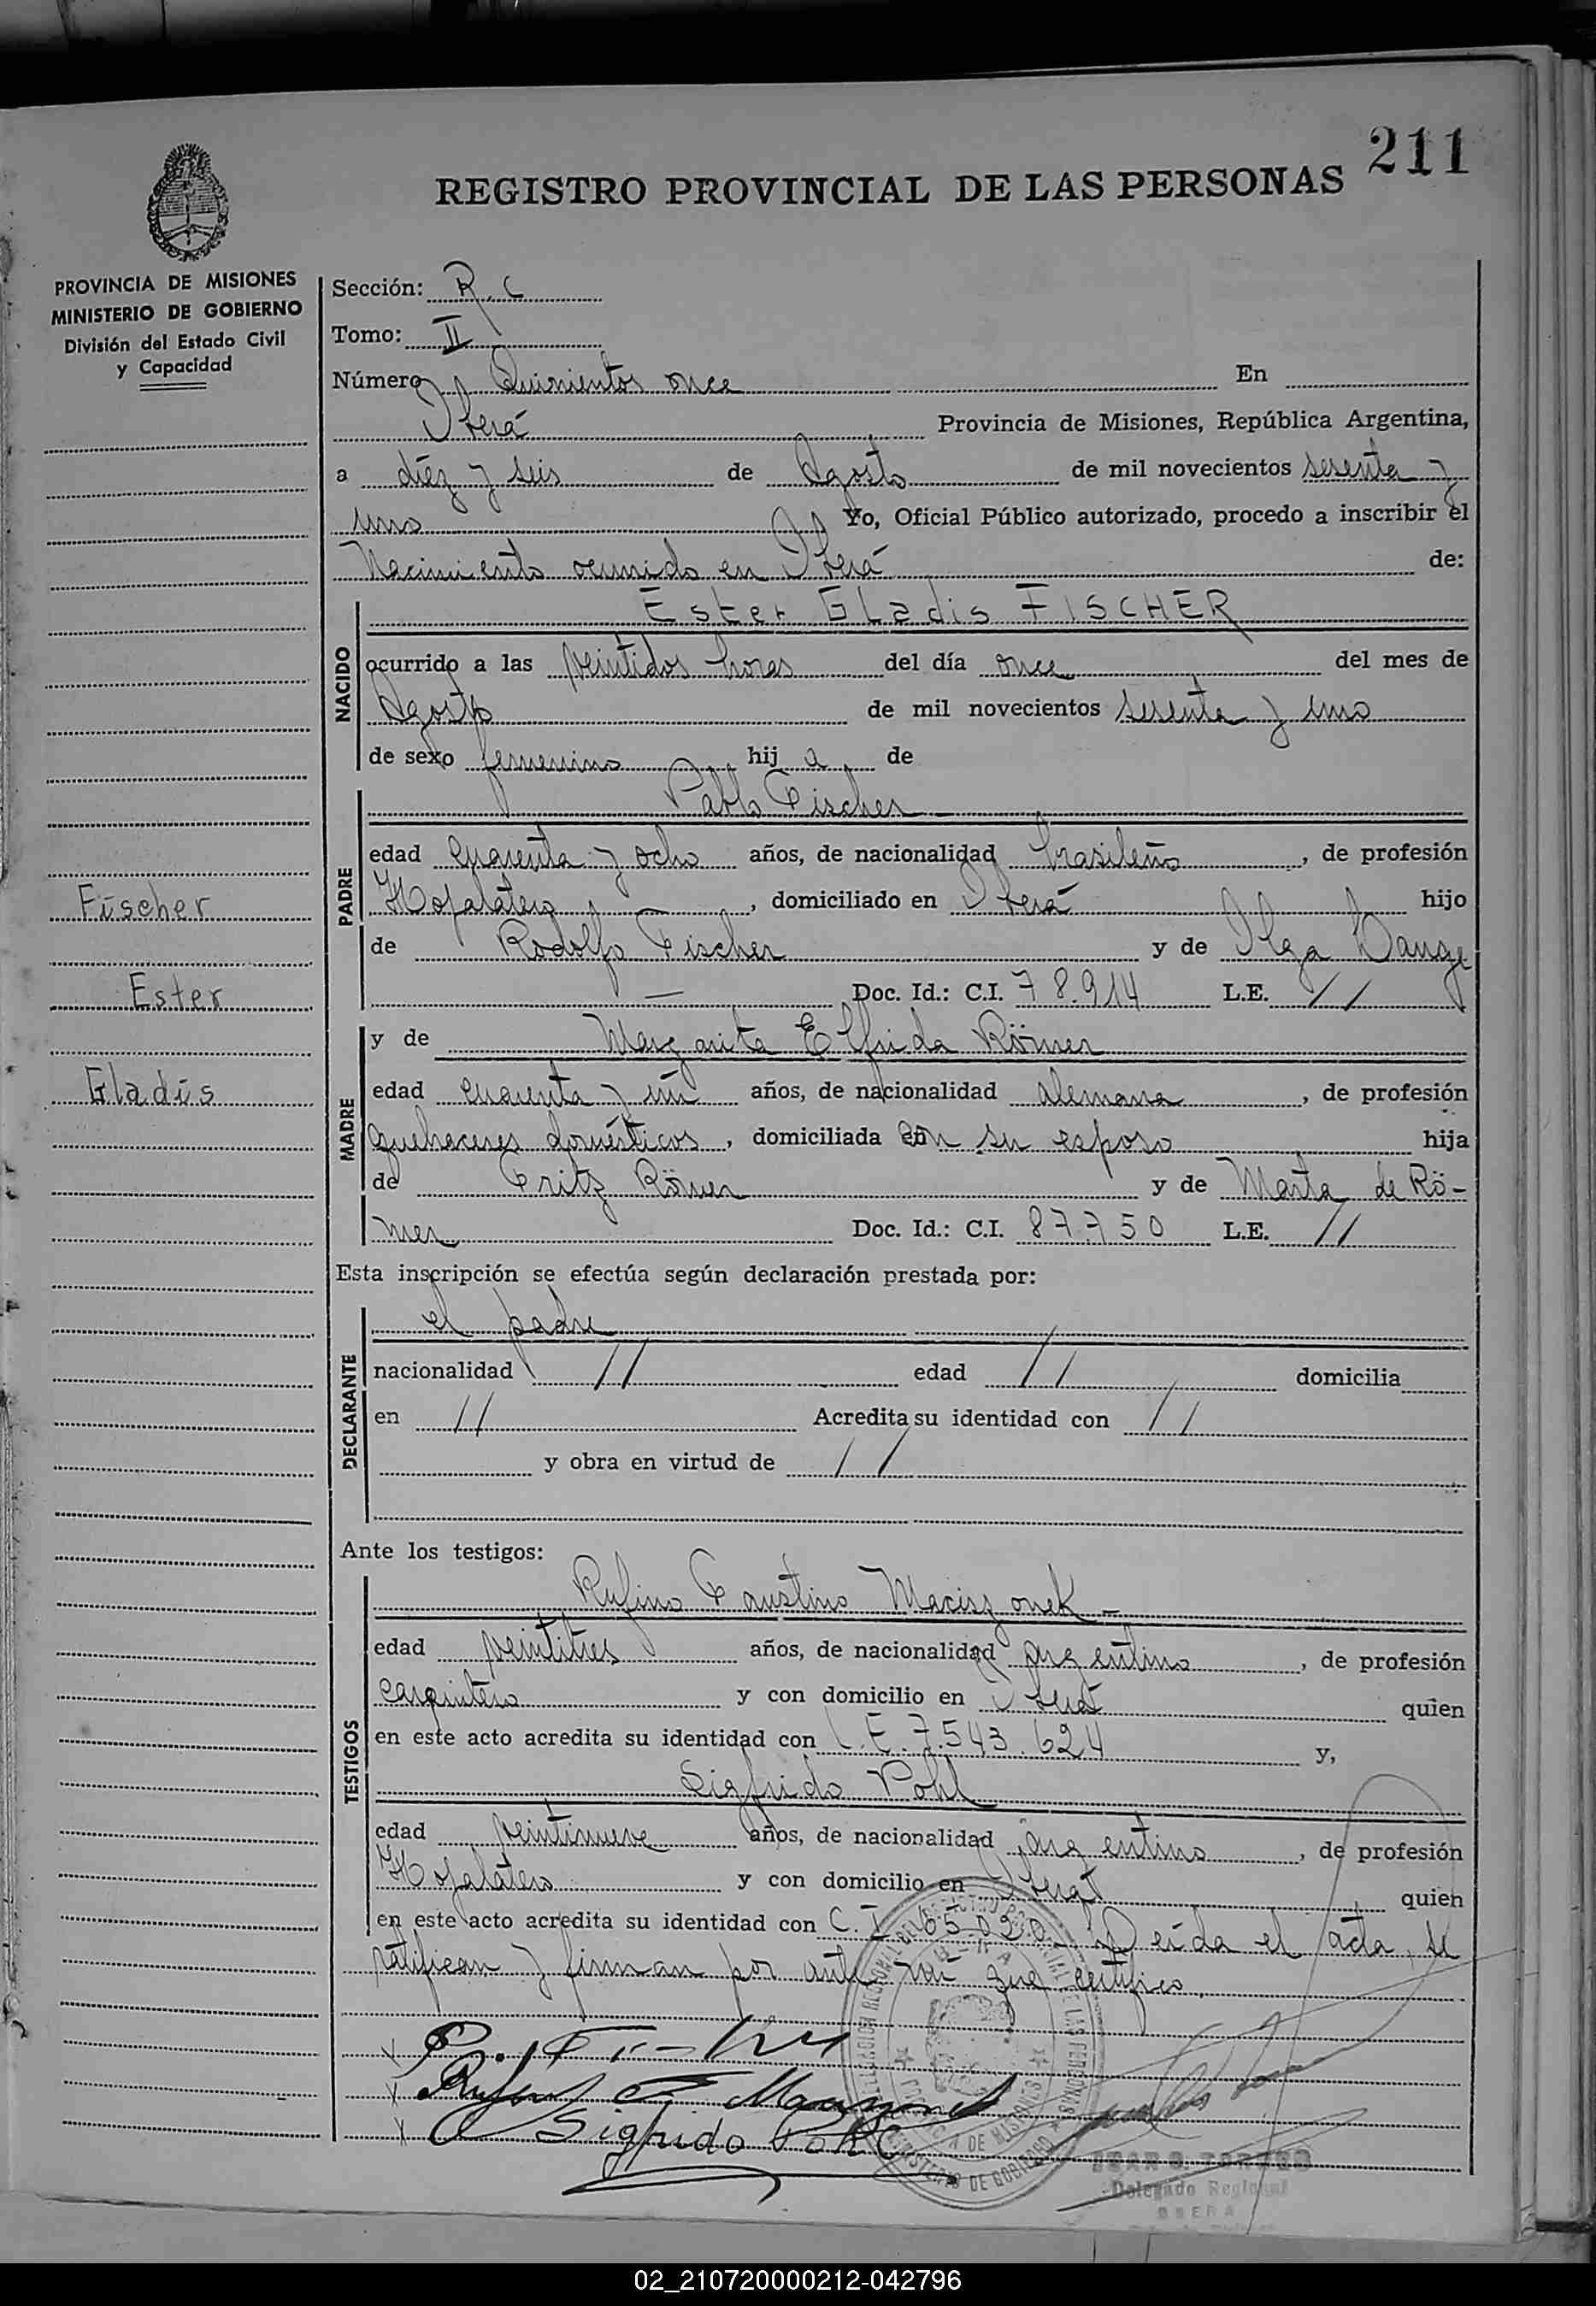 211
REGISTRO PROVINCIAL DE LAS PERSONAS
PROVINCIA DE MISIONES
MINISTERIO DE GOBIERNO
División del Estado Civil
y Capacidad
Sección: R. C
Tomo: II
Número Quinientos once En
Oberá Provincia de Misiones, República Argentina,
a diéz y seis de Agosto de mil novecientos sesenta y
uno Yo, Oficial Público autorizado, procedo a inscribir el
Nacimiento ocurrido en Oberá de:
Ester Gladis FISCHER
NACIDO
ocurrido a las veintidos horas del día once del mes de
Agosto de mil novecientos sesenta y uno
de sexo femenino hij a de
Pablo Fischer
PADRE
edad cuarenta y ocho años, de nacionalidad brasileño, de profesión
Hojalatero, domiciliado en Oberá hijo
de Rodolfo Fischer y de Olga Dange
— Doc. Id.: C.I. 78.914 L.E. //
Fischer
Ester
Gladis
y de Margarita Elfrida Römer
MADRE
edad cuarenta y un años, de nacionalidad alemana, de profesión
quehaceres domésticos, domiciliada con su esposo hija
de Fritz Römer y de Marta de Rö-
mer Doc. Id.: C.I. 87.750 L.E. //
Esta inscripción se efectúa según declaración prestada por:
el padre
DECLARANTE
nacionalidad // edad // domicilia
en // Acredita su identidad con //
y obra en virtud de //
Ante los testigos:
Rufino Faustino Maciszonek —
TESTIGOS
edad veintitres años, de nacionalidad argentino, de profesión
carpintero y con domicilio en Oberá quien
en este acto acredita su identidad con L.E. 7.543.624 y,
Sigfrido Pohl
edad veintinueve años, de nacionalidad argentino, de profesión
Hojalatero y con domicilio en Oberá quien
en este acto acredita su identidad con C.I. 65.020. Leída el acta, se
ratifican y firman por ante mí que certifico.
P. Fischer
Sigfrido Pohl
MINISTERIO DE GOBIERNO
Delegado Regional
OBERA
02_210720000212-042796